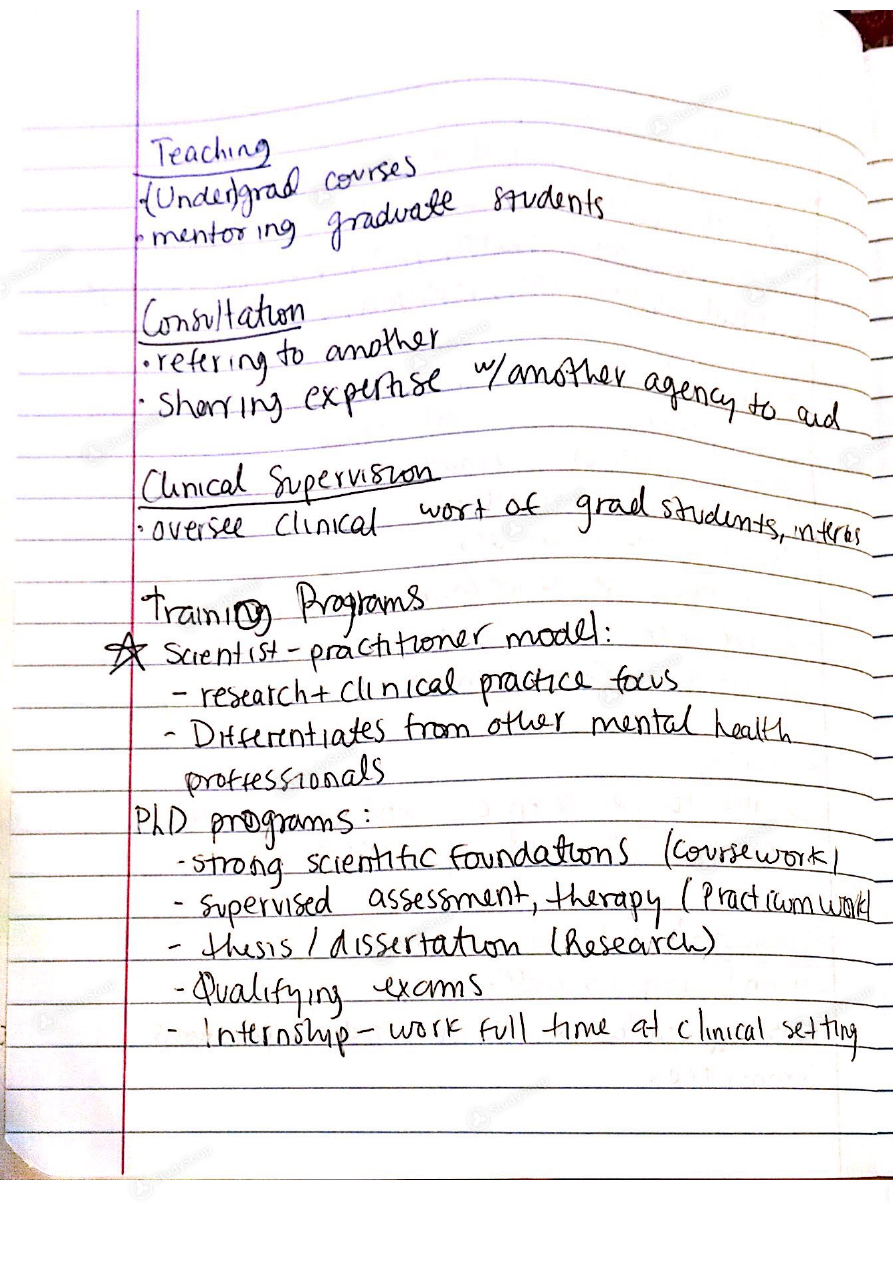 Teaching
·(Under)grad courses
· mentoring graduate students
Consultation
· refering to another
· Sharring expertise w/another agency to aid
Clinical Supervision
· oversee clinical work of grad students, interns
Training Programs
☆ Scientist-practitioner model:
- research + clinical practice focus
- Differentiates from other mental health
proffessionals
PhD programs:
- strong scientific foundations (coursework)
- supervised assessment, therapy (Practicum work)
- thesis / dissertation (Research)
- Qualifying exams
- Internship - work full time at clinical setting
StudySoup